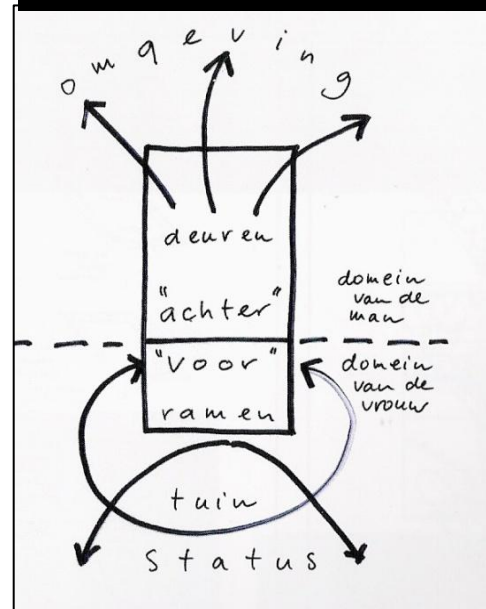 omgeving
deuren
"achter"
domein
van de
man
"Voor"
ramen
domein
van de
vrouw
tuin
status